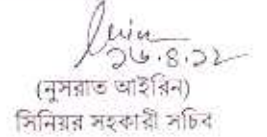 ২৬.৪.২২
(নুসরাত আইরিন)
সিনিয়র সহকারী সচিব